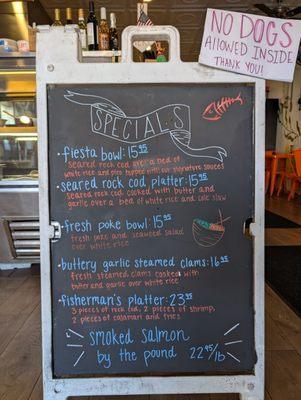 NO DOGS
ALLOWED INSIDE
THANK YOU
SPECIALS
• fiesta bowl: 15.95
Seared rock cod over a bed of
white rice and pico topped with our signature sauces
• Seared rock cod platter: 15.95
Seared rock cod cooked with butter and
garlic over a bed of white rice and cole slaw
• fresh poke bowl: 15.95
fresh poke and seaweed salad
over white rice
• buttery garlic steamed clams: 16.95
fresh steamed clams cooked with
butter and garlic over white rice
• fisherman's platter: 23.95
3 pieces of rock cod, 2 pieces of shrimp,
2 pieces of calamari and fries
smoked salmon
by the pound 22.95/lb